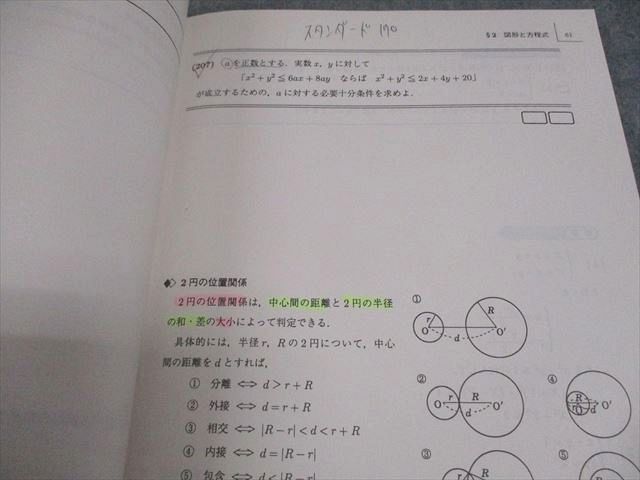 スタンダード 170
§2 図形と方程式 61
(207) aを正数とする. 実数 x, y に対して
「x² + y² ≦ 6ax + 8ay ならば x² + y² ≦ 2x + 4y + 20」
が成立するための, a に対する必要十分条件を求めよ.
◆ 2円の位置関係
2円の位置関係は, 中心間の距離と2円の半径
の和・差の大小によって判定できる.
具体的には, 半径 r, R の2円について, 中心
間の距離を d とすれば,
① 分離 ⟺ d > r + R
② 外接 ⟺ d = r + R
③ 相交 ⟺ |R − r| < d < r + R
④ 内接 ⟺ d = |R − r|
⑤ 包含 ⟺ d < |R − r|
①
r R
O d O'
②
r R
O d O'
④
R
r
O d O'
③
R
⑤